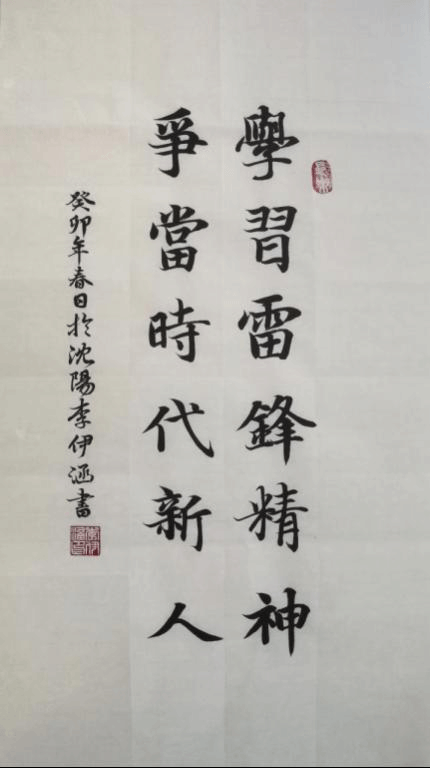 學習雷鋒精神
爭當時代新人
癸卯年春日於沈陽李伊涵書